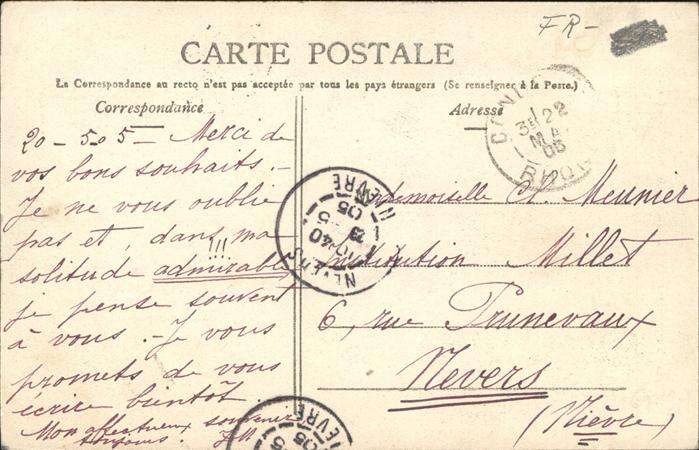 FR-
CARTE POSTALE
La Correspondance au recto n'est pas acceptée par tous les pays étrangers (Se renseigner à la Poste.)
Correspondance
Adresse
20 - 5 05 - Merci de
vos bons souhaits. -
Je ne vous oublie
pas et, dans ma
solitude admirable !!!
je pense souvent
à vous. - Je vous
promets de vous
écrire bientôt.
Mon affectueux souvenir
toujours. JM
Mademoiselle A. Meunier
Institution Millet
6, rue Prunevaux
Nevers
(Nièvre)
3E 22
MAI
05
RHONE
NEVERS
NIEVRE
05
IEVRE
05